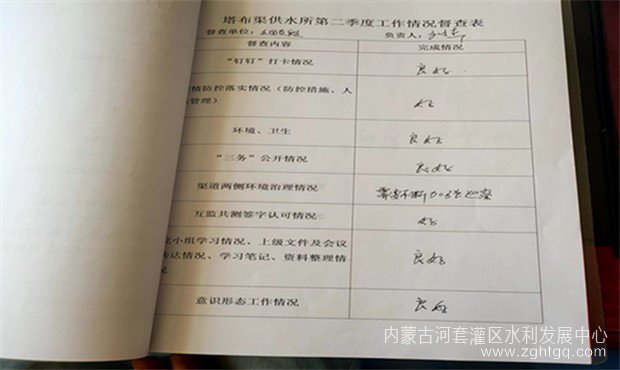 塔布渠供水所第二季度工作情况督查表
督查单位： 负责人：
督查内容 完成情况
“钉钉”打卡情况 良好
情防控落实情况（防控措施、人 好
管理）
环境、卫生 良好
“三务”公开情况 良好
渠道两侧环境治理情况
互监共测签字认可情况 好
小组学习情况、上级文件及会议 良好
达情况、学习笔记、资料整理情
意识形态工作情况 良好
内蒙古河套灌区水利发展中心
www.zghtgq.com